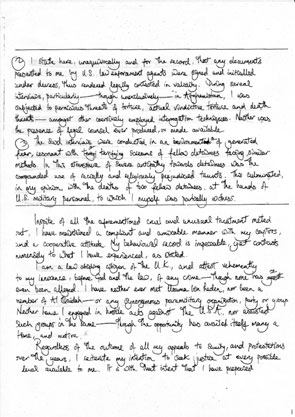 ② I state here, unequivocally and for the record, that any documents
presented to me by U.S. law enforcement agents were signed and initialled
under duress, thus rendered legally contested in validity. During several
interviews, particularly — though exclusively — in Afghanistan, I was
subjected to pernicious threats of torture, actual vindictive torture, and death
threats — amongst other coercively employed interrogation techniques. Neither was
the presence of legal counsel ever produced, or made available.
③ The said interviews were conducted in an environment of generated
fear, resonant with terrifying screams of fellow detainees facing similar
methods. In this atmosphere of severe antipathy towards detainees was the
compounded use of racially and religiously prejudiced taunts. This culminated,
in my opinion with the deaths of two fellow detainees, at the hands of
U.S. military personnel, to which I myself was partially witness.
In spite of all the aforementioned cruel and unusual treatment meted
out, I have maintained a compliant and amicable manner with my captors,
and a cooperative attitude. My behavioural record is impeccable, yet contrasts
immensely to what I have experienced, as stated.
I am a law abiding citizen of the U.K., and attest vehemently
to my innocence, before God and the law, of any crime — though none has
even been alleged. I have neither ever met Usama bin Laden, nor been a
member of Al Qaidah — or any synonymous paramilitary organization, party, or group.
Neither have I engaged in hostile acts against the U.S.A., nor assisted
such groups in the same — though the opportunity has availed itself many a
time, and motive.
Regardless of the outcome of all my appeals to sanity, and protestations
over the years, I reiterate my intention to seek justice at every possible
level available to me. It is with that intent that I have prepared